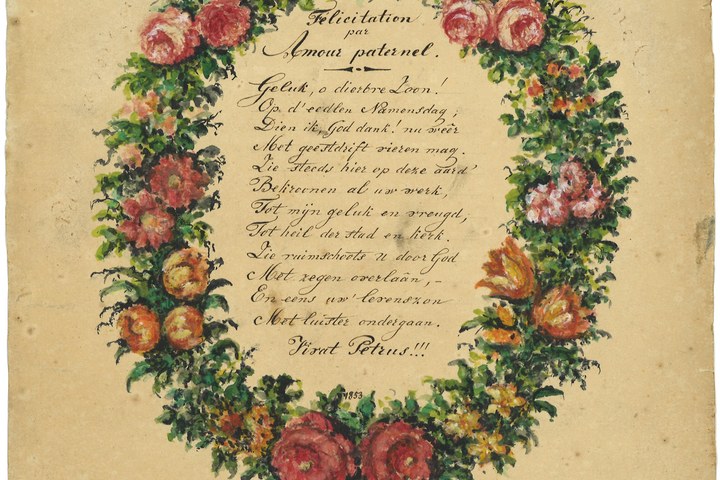 Felicitation
par
Amour paternel.
Geluk, o dierbre Zoon!
Op d'eedlen Namensdag,
Dien ik, God dank! nu weêr
Met geestdrift vieren mag.
Zie steeds hier op deze aard
Bekroonen al uw werk,
Tot mijn geluk en vreugd,
Tot heil der stad en kerk.
Zie ruimschoots u door God
Met zegen overlaân, –
En eens uw' levenszon
Met luister ondergaan.
Vivat Petrus!!!
1853